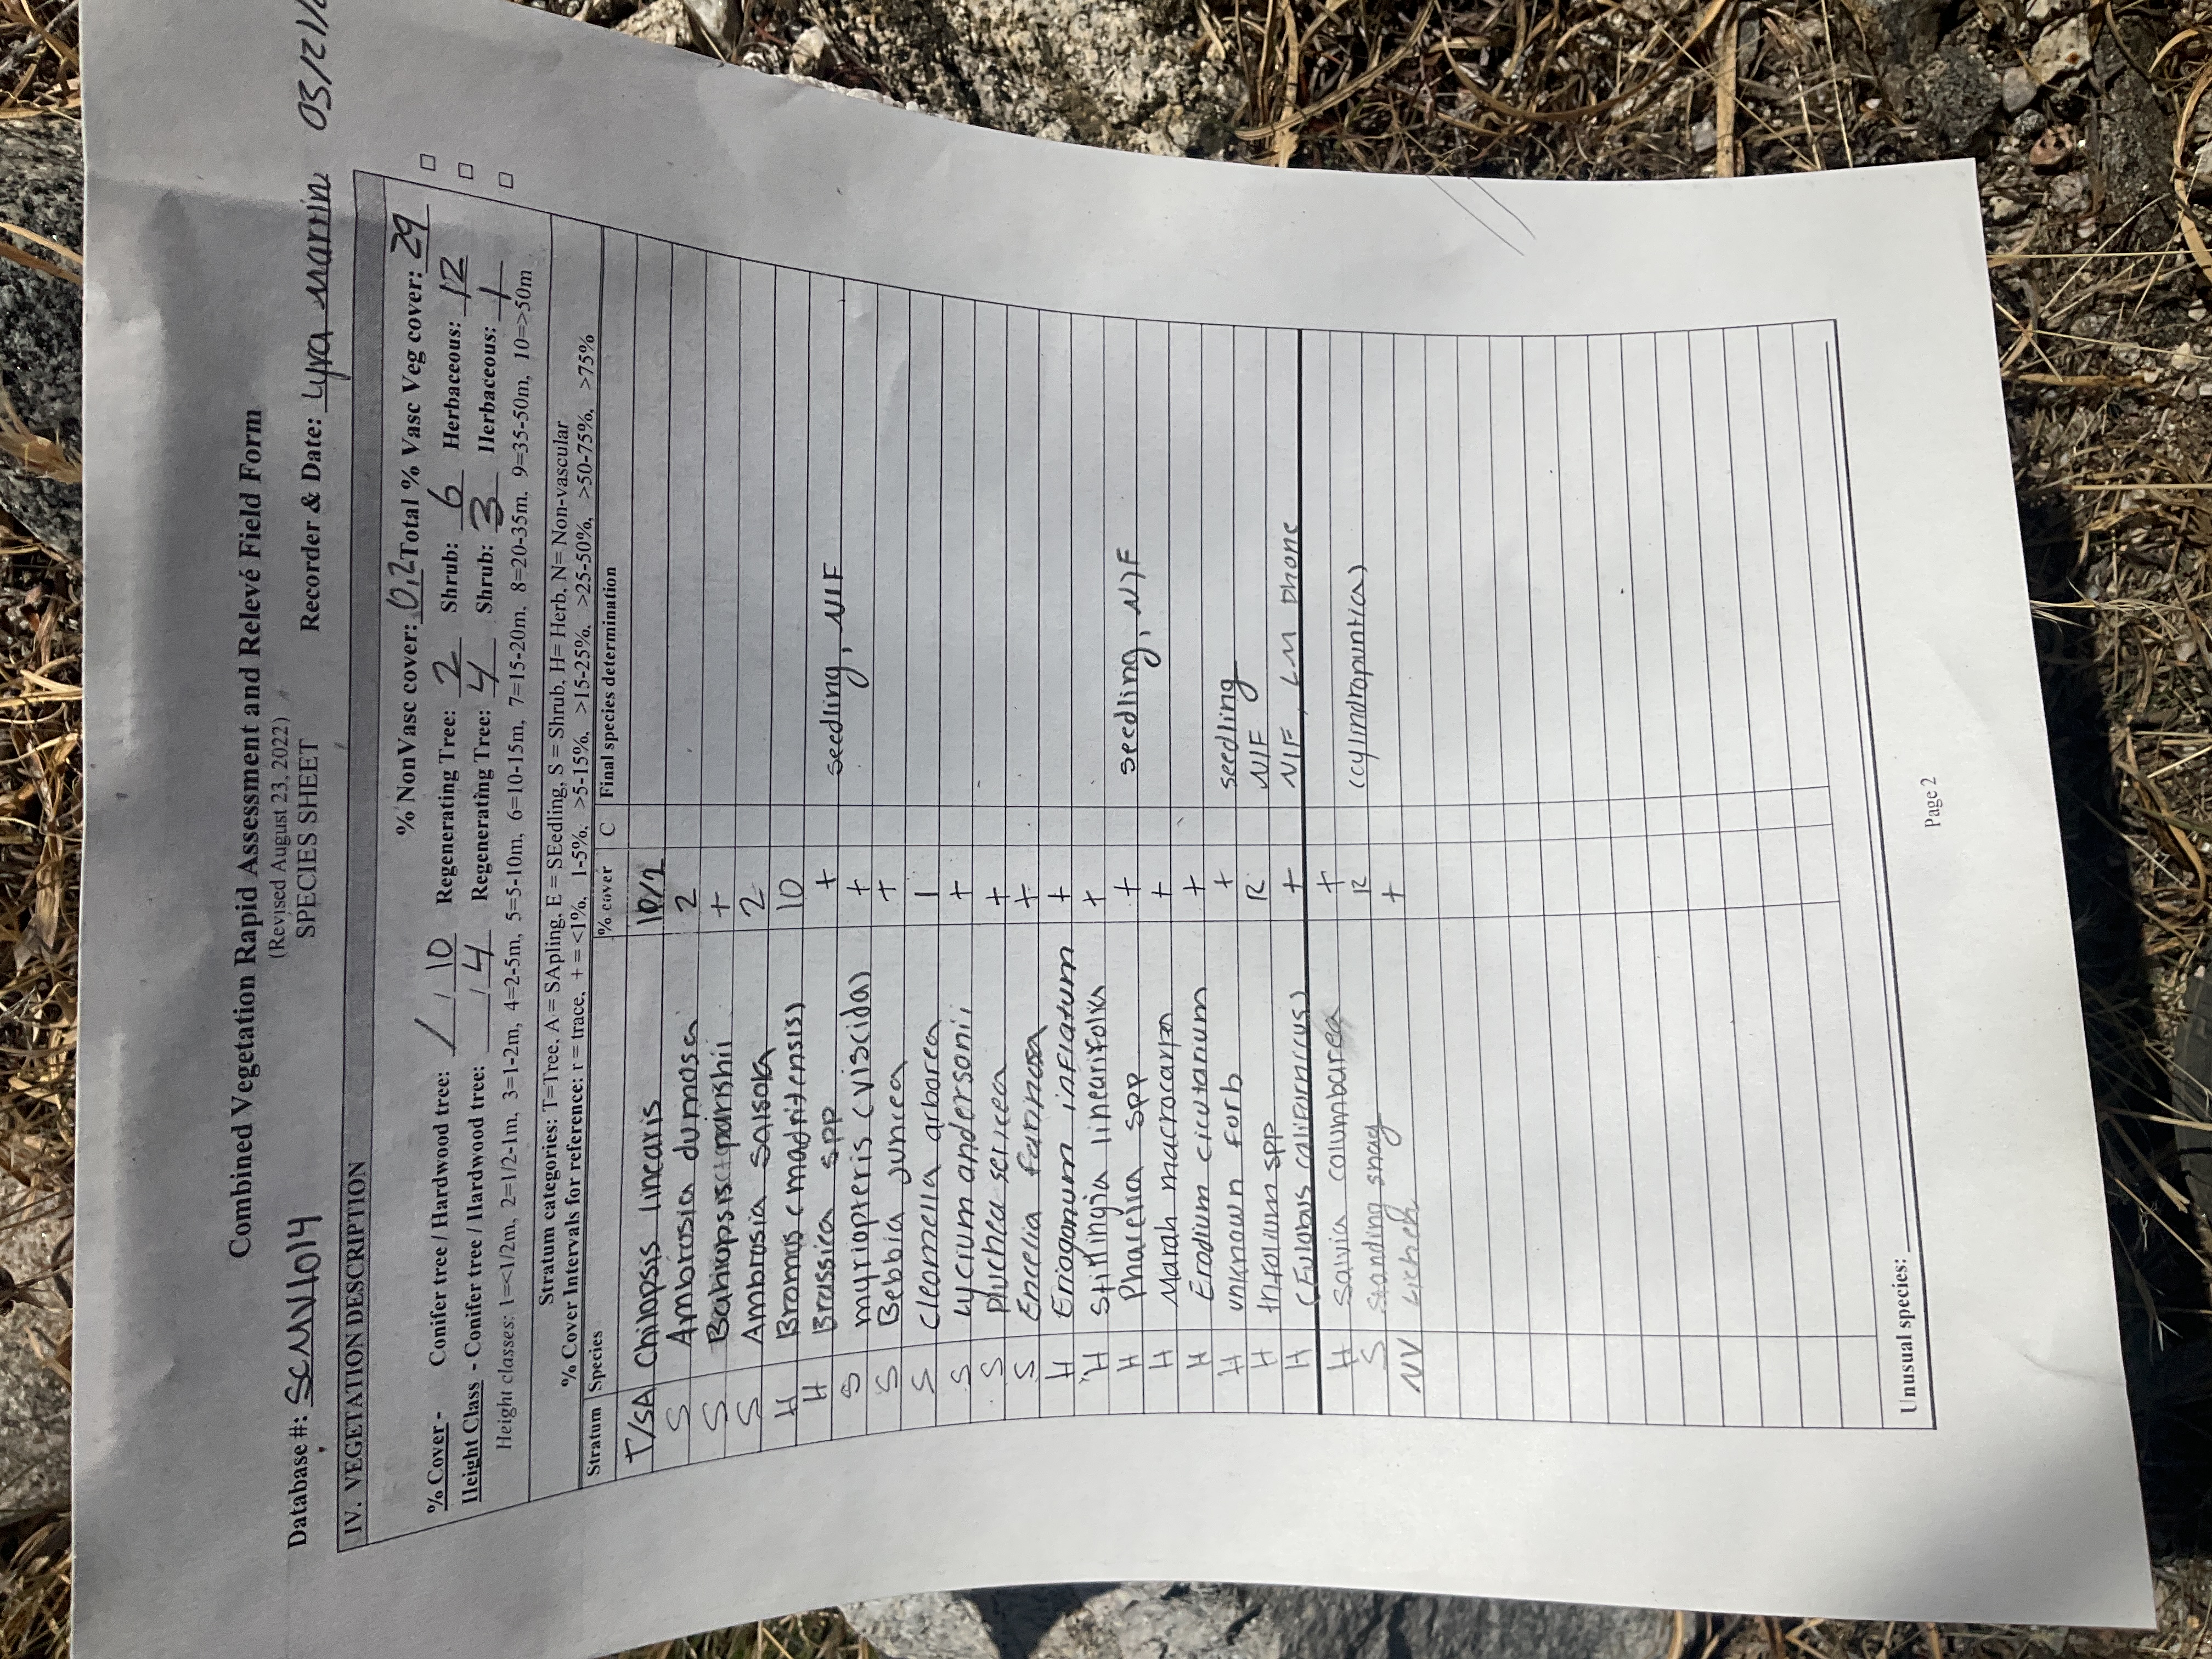 Combined Vegetation Rapid Assessment and Relevé Field Form
(Revised August 23, 2022)
SPECIES SHEET
Database #: SCMV1014 Recorder & Date: Lyra Marrin 03/21/2
IV. VEGETATION DESCRIPTION
% NonVasc cover: 0.2 Total % Vasc Veg cover: 29
% Cover - Conifer tree / Hardwood tree: / 10 Regenerating Tree: 2 Shrub: 6 Herbaceous: 12
Height Class - Conifer tree / Hardwood tree: / 4 Regenerating Tree: 4 Shrub: 3 Herbaceous: 1
Height classes: 1=<1/2m, 2=1/2-1m, 3=1-2m, 4=2-5m, 5=5-10m, 6=10-15m, 7=15-20m, 8=20-35m, 9=35-50m, 10=>50m
Stratum categories: T=Tree, A = SApling, E = SEedling, S = Shrub, H= Herb, N= Non-vascular
% Cover Intervals for reference: r = trace, + = <1%, 1-5%, >5-15%, >15-25%, >25-50%, >50-75%, >75%
Stratum Species % cover C Final species determination
T/SA Chilopsis linearis 10/2
S Ambrosia dumosa 2
S Bahiopsis parishii +
S Ambrosia salsola 2
H Bromus (madritensis) 10
H Brassica spp + seedling, NIF
S myriopteris (viscida) +
S Bebbia juncea +
S Cleomella arborea 1
S Lycium andersonii +
S Pluchea sericea +
S Encelia farinosa +
H Eriogonum inflatum +
H Stillingia linearifolia +
H Phacelia spp + seedling, NIF
H Marah macrocarpa +
H Erodium cicutarium +
H unknown forb + seedling
H trifolium spp R NIF
H (Eulobus californicus) + NIF, LM phone
H Salvia columbarea +
S Standing snag R (cylindropuntia)
NV Lichen +
Unusual species:
Page 2